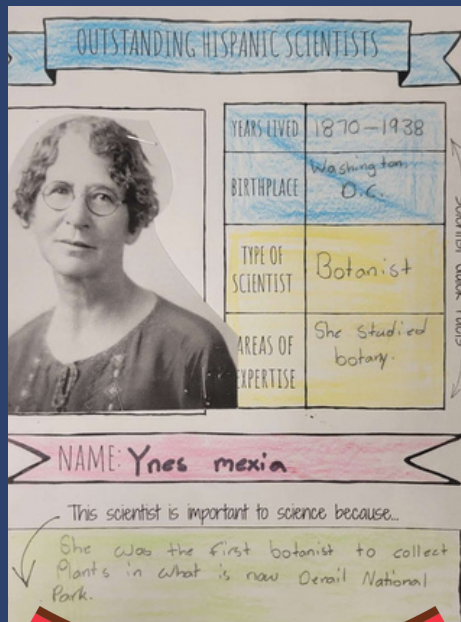 OUTSTANDING HISPANIC SCIENTISTS
YEARS LIVED
1870-1938
BIRTHPLACE
Washington
D.C.
TYPE OF
SCIENTIST
Botanist
AREAS OF
EXPERTISE
She studied
botany.
NAME: Ynes mexia
This scientist is important to science because...
She was the first botanist to collect
Plants in what is now Denail National
Park.